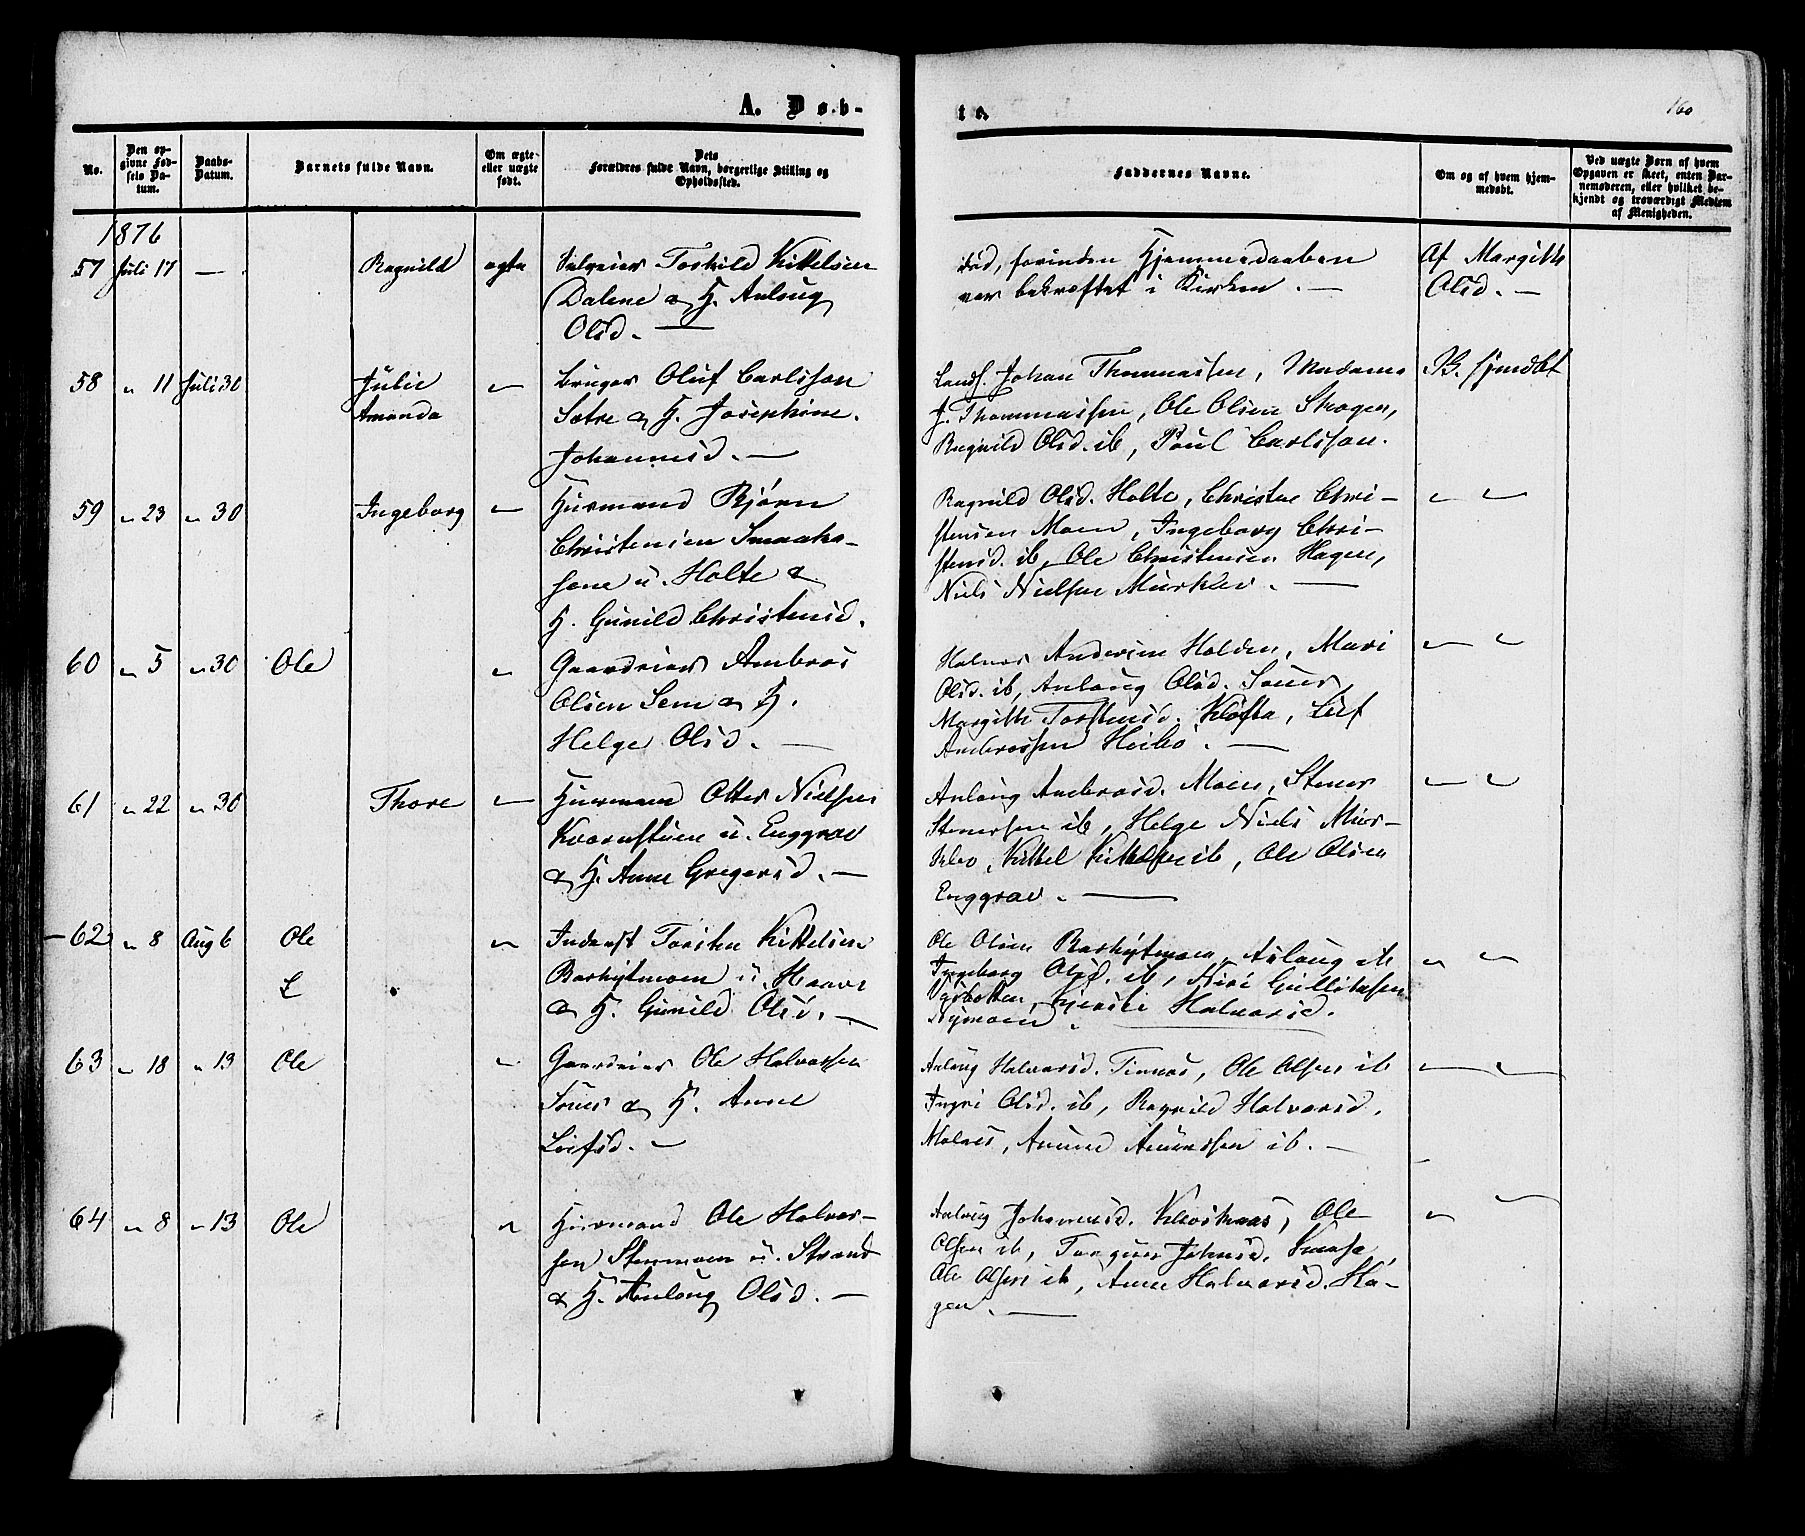 A. Døb-
te.
160
No.
Den opgivne Fødsels Datum.
Daabs-Datum.
Barnets fulde Navn.
Om ægte eller uægte født.
Dets Forældres fulde Navn, borgerlige Stilling og Opholdssted.
Faddernes Navne.
Om og af hvem hjemmedøbt.
Ved uægte Børn af hvem Opgaven er skeet, enten Barnemoderen, eller hvilket bekjendt og troværdigt Medlem af Menigheden.
1876
57 Juli 17 — Ragnild ægte Selveier Torkild Kittelsen
Dalene & H. Aslaug
Olsd. —
død, forinden Hjemmedaaben
var bekræftet i Kirken. —
Af Margith
Olsd. —
58 " 11 Juli 30 Julie
Amanda
" Bruger Oluf Carlsson
Sætre & H. Josephine
Johannesd. —
Johan Thommassen, Madame
J. Thommassen, Ole Olsen Skogen,
Ragnild Olsd. ib, Poul Carlsson.
59 " 23 " 30 Ingeborg " Husmand Bjørn
Christensen
u. Holte &
H. Gunild Christensd.
Ragnild Olsd. Holte, Christen Chri-
stensen Moen, Ingeborg Chri-
stensd. ib, Ole Christensen Hagen,
Niels Nielsen Murklev. —
" "
60 " 5 " 30 Ole " Gaardeier Ambros
Olsen Sem & H.
Helge Olsd. —
Halvor Andersen Holden, Mari
Olsd. ib, Aslaug Olsd.
Margith Torstensd. Kløfta, Leif
Ambrossen Heibø. —
" "
61 " 22 " 30 Thore " Husmand Otter Nielsen
Kvernstuen u. Enggrav
& H. Anne Gregersd. —
Aslaug Ambrosd. Moen, Stener
Stenersen ib, Helge Niels Mur-
klev, Kittel Kittelsen ib, Ole Olsen
Enggrav. —
" "
62 " 8 Aug 6 Ole " Inderst Torsten Kittelsen
u.
& H. Gunild Olsd. —
Ole Olsen Aslaug
Ingeborg Olsd. ib,
Halvorsd.
Nymoen. —
" "
63 " 18 " 13 Ole " Gaardeier Ole Halvorsen
& H. Anne
Leifsd. —
Aslaug Halvorsd. Tinnes, Ole Olsen ib
Ingri Olsd. ib, Ragnild Halvorsd.
Anund Anundsen ib. —
" "
64 " 8 " 13 Ole " Husmand Ole Halvor-
sen Stenmoen u. Strand
& H. Aslaug Olsd. —
Aslaug Johannesd. Ole
Olsen ib, Johnsd.
Ole Olsen ib, Anne Halvorsd. Ha-
gen. —
"